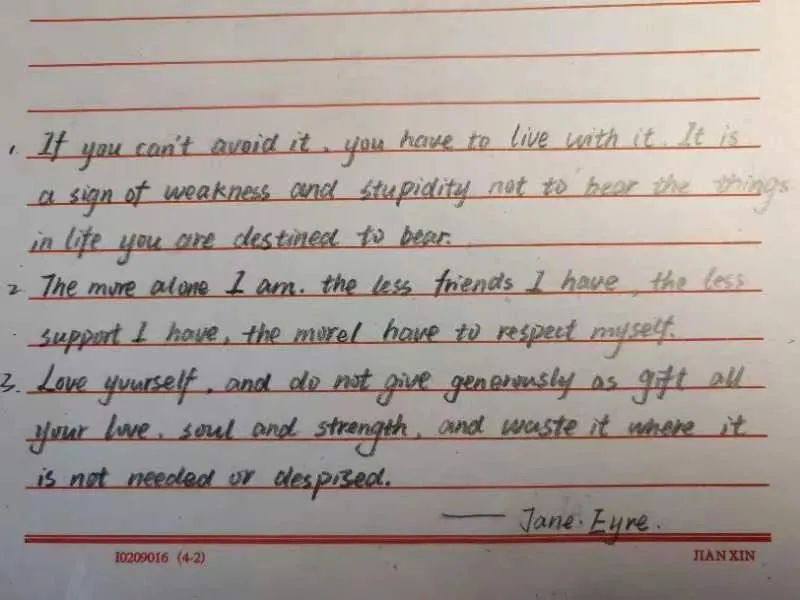 1. If you can't avoid it, you have to live with it. It is
a sign of weakness and stupidity not to bear the things
in life you are destined to bear.
2 The more alone I am. the less friends I have, the less
support I have, the moreI have to respect myself.
3. Love yourself, and do not give generously as gift all
your love. soul and strength, and waste it where it
is not needed or despised.
—— Jane. Eyre.
I0209016 (4-2) JIAN XIN